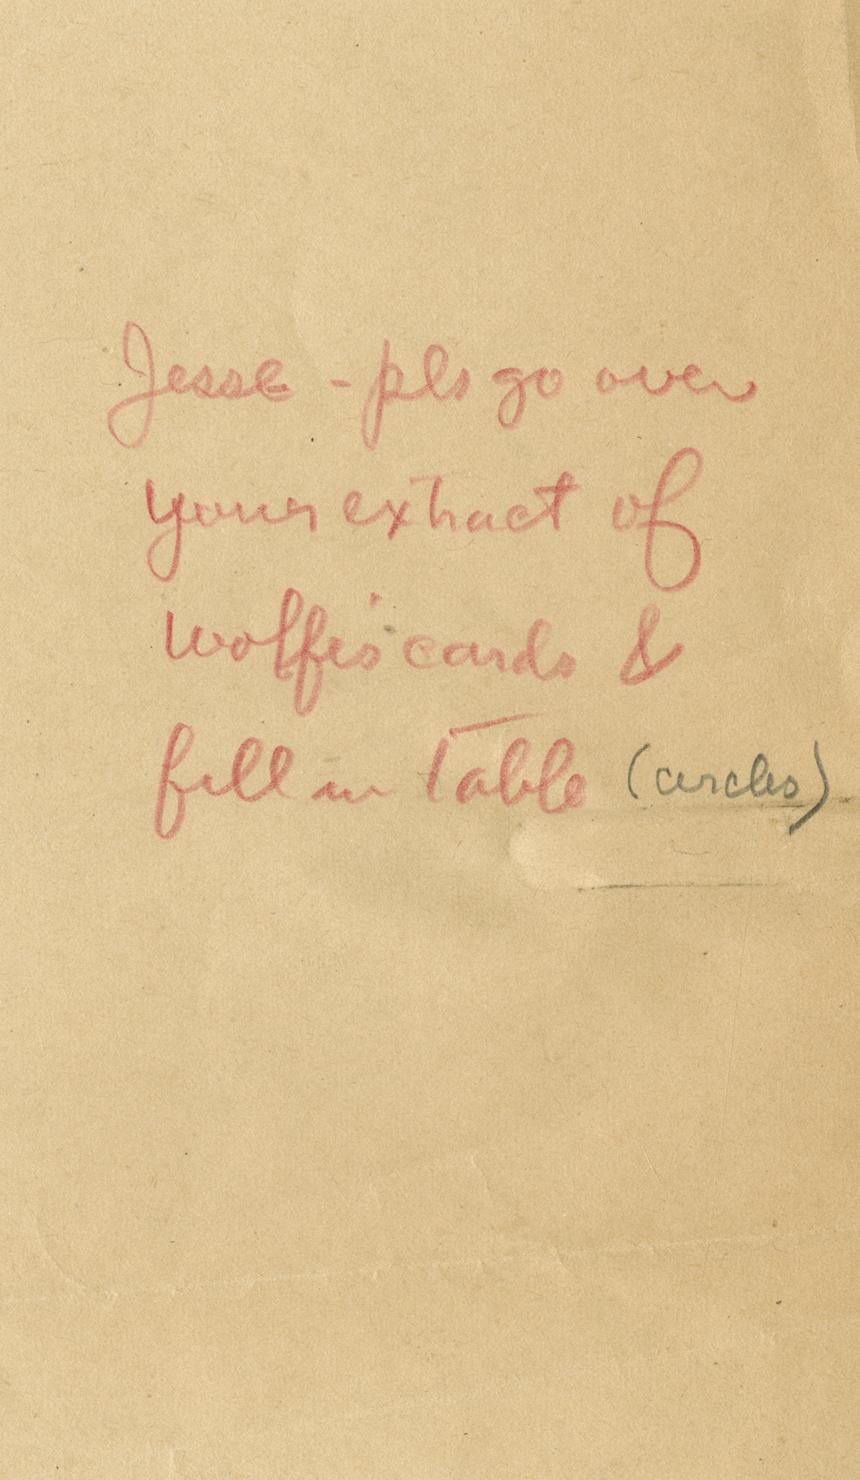 Jesse - pls go over
your extract of
Wolffe's cards &
fill in Table (circles)